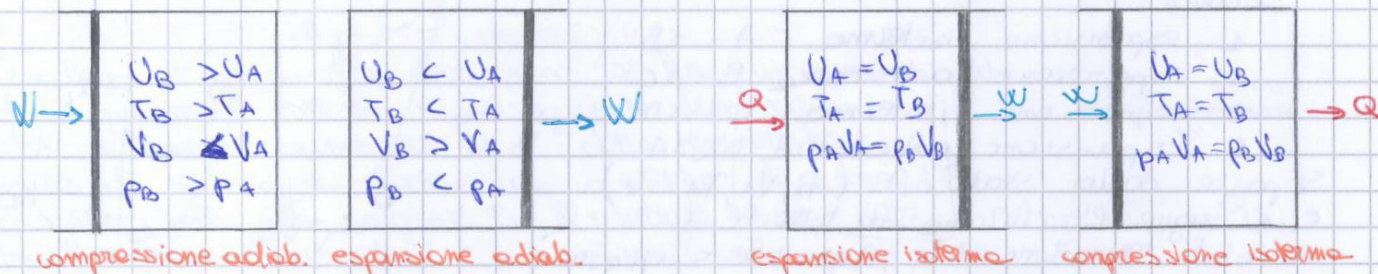 U_B > U_A
T_B > T_A
W →
V_B < V_A
p_B > p_A
compressione adiab.
U_B < U_A
T_B < T_A
V_B > V_A
→ W
p_B < p_A
espansione adiab.
Q →
U_A = U_B
T_A = T_B
→ W
p_A V_A = p_B V_B
espansione isoterma
W →
U_A = U_B
T_A = T_B
→ Q
p_A V_A = p_B V_B
compressione isoterma